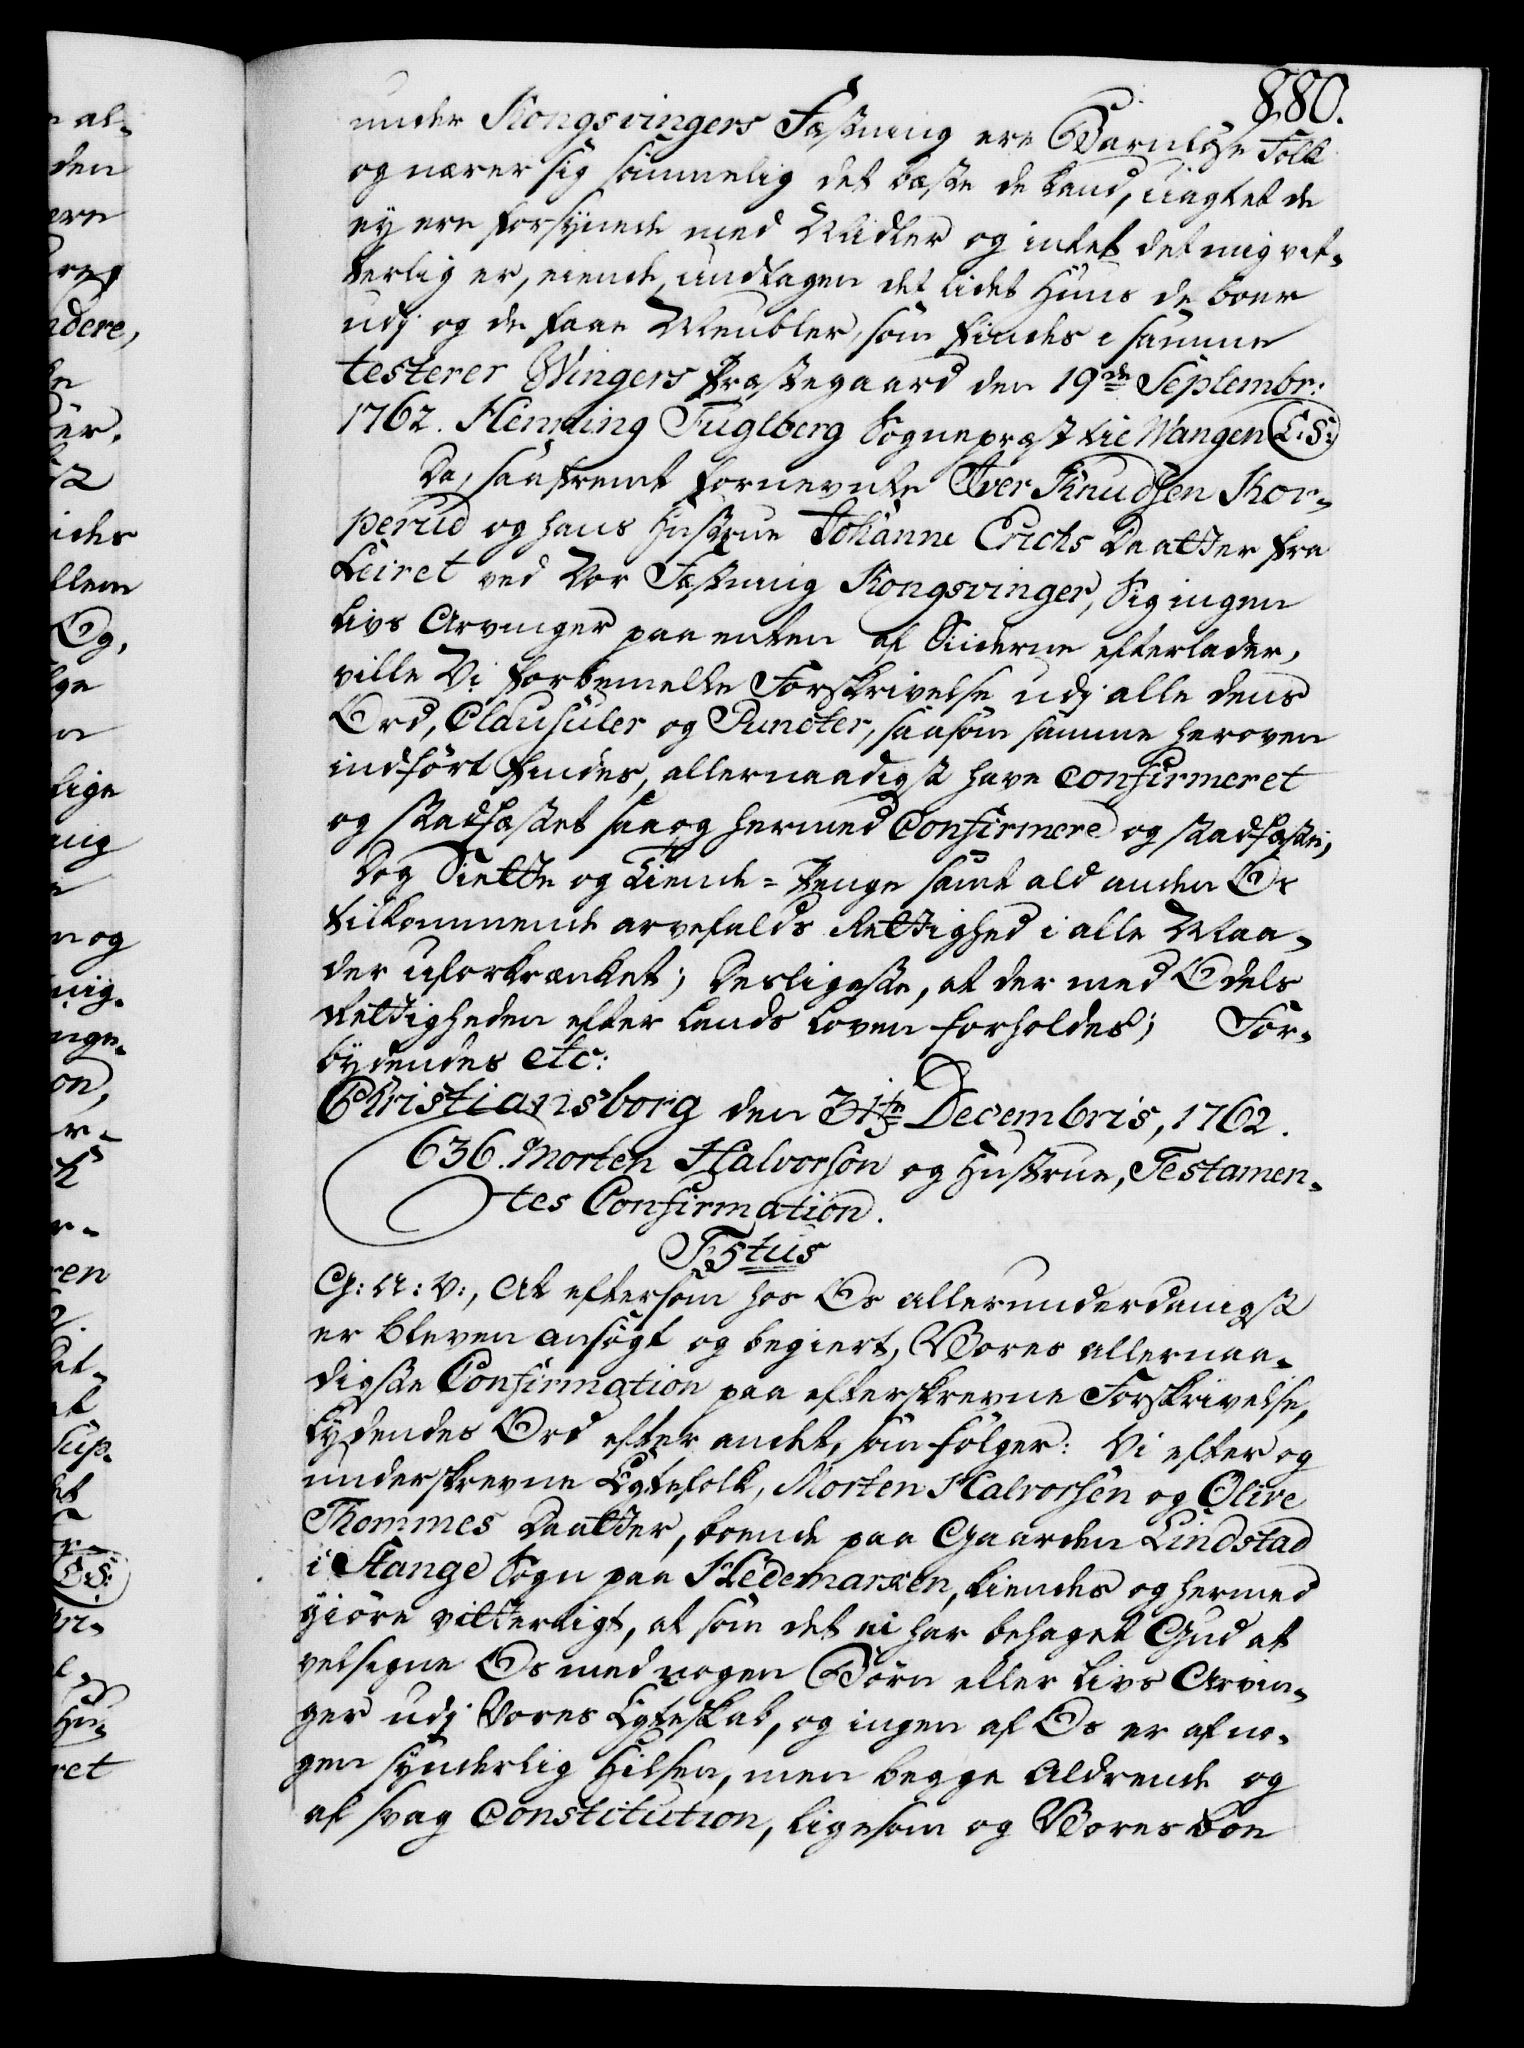 880.
under Kongsvingers Fæstning ere Barnløse Folk
og nærer sig sømmelig det bæste de kand, uagtet de
ey ere forsynede med Midler og intet det mig vit-
terlig er, eiende, undtagen det lidet Huus de boer
udj og de faae Meubler, som findes i samme
testerer Wingers Præstegaard den 19de Septembr:
1762. Henning Fuglberg Sognepræst til Wangen (L:S:)
Da, saafremt fornevnte Iver Knudsen Kor-
perud og hans Hustrue Johanne Erichs Daatter fra
Leiret ved Vor Fæstning Kongsvinger, Sig ingen
Livs Arvinger paa enten af Siiderne efterlader,
ville Vi forbemelte Forskrivelse udj alle dens
Ord, Clausuler og Puncter, saasom samme heroven
indført findes, allernaadigst have Confirmeret
og stadfæstet saa og hermed Confirmere og stadfæste,
Dog Siette og Tiende-Penge samt ald anden Os
tilkommende arvefalds Rettighed i alle Maa-
der uforkrænket; Desligeste, at der med Odels
Rettigheden efter Lands Loven forholdes; For-
bydendes etc:
Christiansborg den 31te Decembris, 1762.
636. Morten Halvorsøn og Hustrue, Testamen-
tes Confirmation.
F5tus
G: A: V:, At eftersom hos Os allerunderdanigst
er bleven ansøgt og begiert, Vores allernaa-
digste Confirmation paa efterskrevne Forskrivelse,
lydendes Ord efter andet, som følger: Vi efter og
underskrevne Egtefolk, Morten Halvorsen og Olive
Thommes Daatter, boende paa Gaarden Lindstad
i Stange Sogn paa Hedemarken, kiendes og hermed
giøre vitterligt, at som det ei har behaget Gud at
velsigne Os med nogen Børn eller Livs Arvin-
ger udj Vores Egteskab, og ingen af Os er af no-
gen synderlig Hilsen, men begge Aldrende og
af svag Constitution, ligesom og Vores Boe